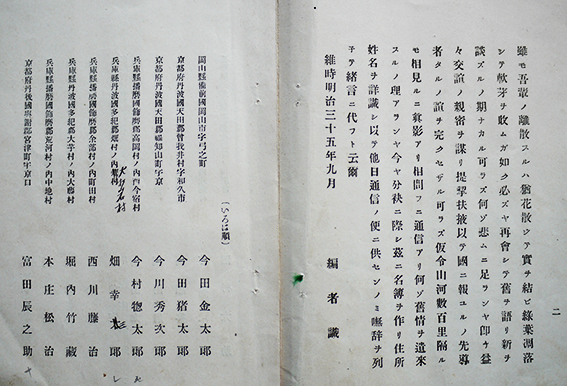 二
雖モ吾輩ノ離散スルハ猶花散シテ實ヲ結ビ綠葉凋落
シテ軟芽ヲ收ムガ如ク必ズヤ再會シテ舊ヲ語リ新ヲ
談ズルノ期ナカル可ラズ何ゾ悲ムニ足ランヤ卽ケ益
々交誼ノ親密ヲ謀リ提挈扶掖以テ國ニ報ユルノ先導
者タルノ誼ヲ完クセザル可ラズ仮令山河數百里隔ル
モ相見ルニ眞影アリ相問フニ通信アリ何ゾ舊情ヲ遺來
スルノ理アランヤ今ヤ分袂ニ際シ茲ニ名簿ヲ作リ住所
姓名ヲ詳識シ以テ他日通信ノ便ニ供センノミ嘸辭ヲ列
子テ緒言ニ代フト云爾
維時明治三十五年九月
編者識
(いろは順)
岡山縣備前國岡山市字弓之町 今田金太郎
京都府丹波國天田郡曾我井村字和久市 今田猪太郎
京都府丹波國天田郡福知山町字京 今川秀次郎
兵庫縣播磨國飾磨郡高岡村ノ內今宿村 今村惣太郎
兵庫縣丹波國多紀郡畑村ノ內 畑幸 郎
兵庫縣播磨國飾磨郡余部村ノ內町田村 西川藤治
兵庫縣丹波國多紀郡大芋村ノ內大藤村 堀內竹藏
兵庫縣播磨國飾磨郡荒川村ノ內中地村 本庄松治
京都府丹後國與謝郡宮津町字京口 富田辰之助